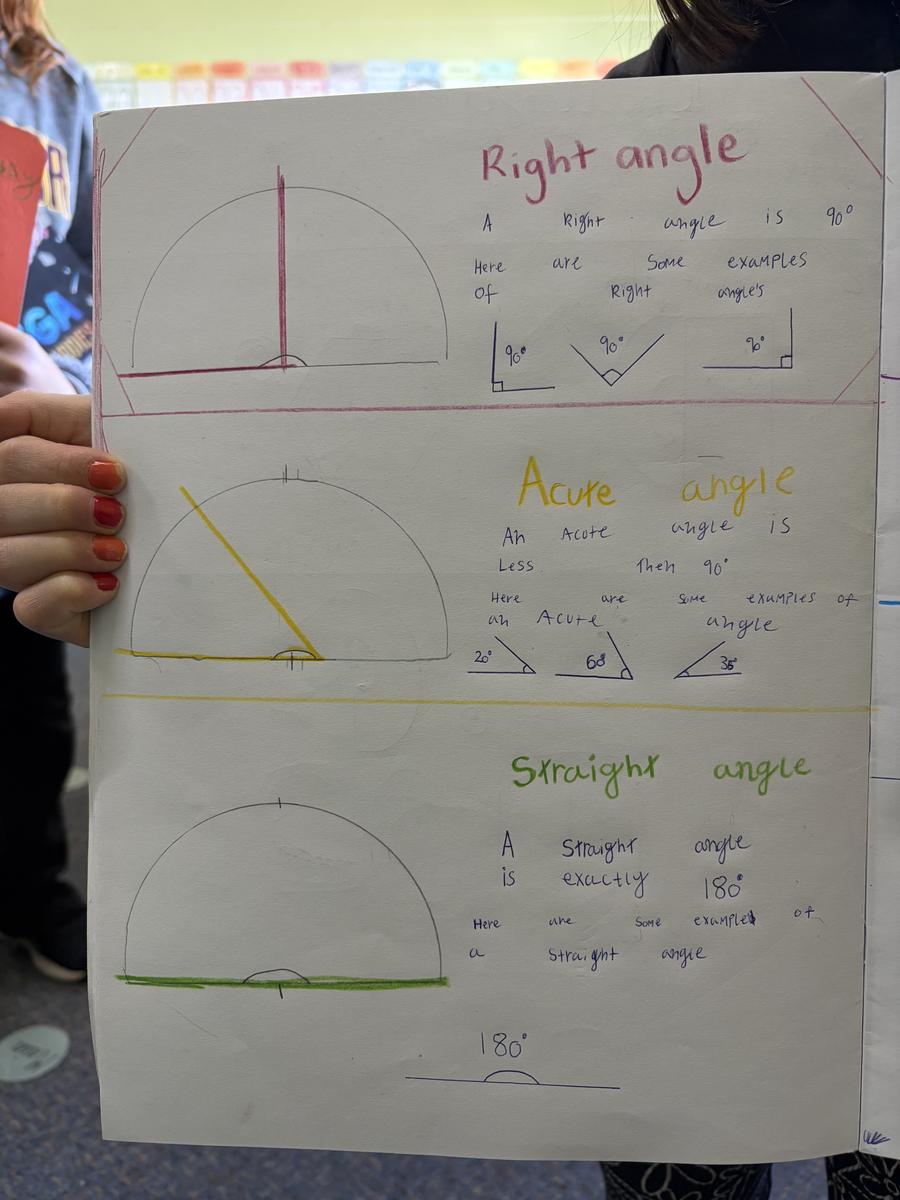 Right angle
A Right angle is 90°
Here are Some examples
Of Right angle's
90°
90°
90°
Acute angle
An Acute angle is
Less Then 90°
Here are some examples of
an Acute angle
20°
60°
35°
Straight angle
A Straight angle
is exactly 180°
Here are Some examples of
a Straight angle
180°
GA